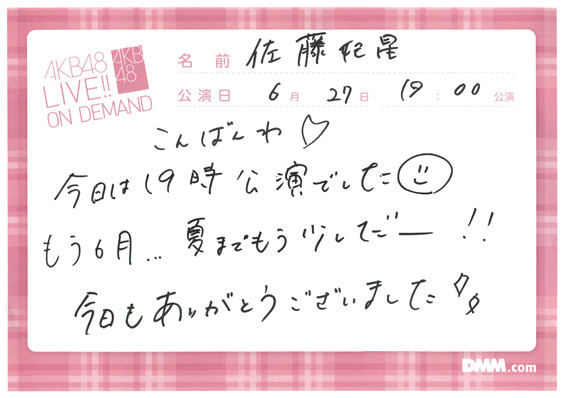 AKB48
LIVE!!
ON DEMAND
AKB
48
名前 佐藤妃星
公演日 6月 27日 19:00 公演
こんばんわ♡
今日は19時公演でした☺
もう6月... 夏までもう少しだー!!
今日もありがとうございました
DMM.com